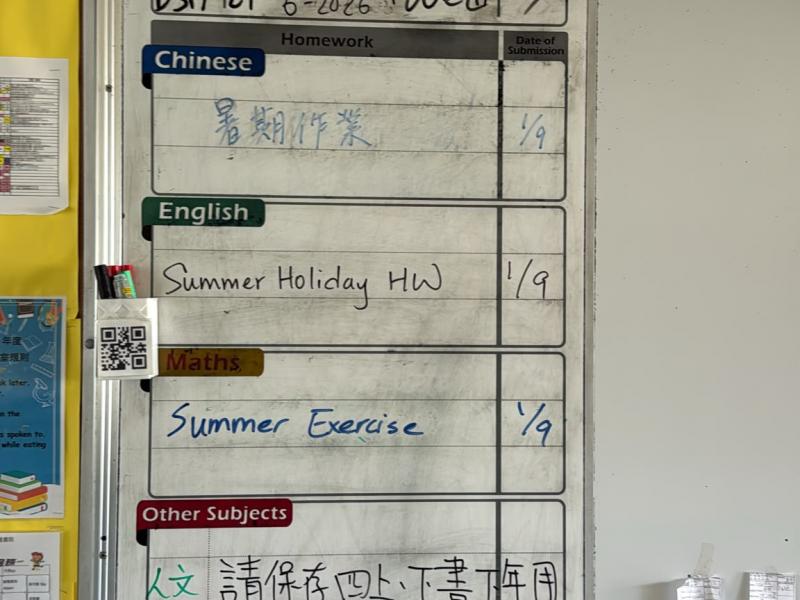 6-2026
Homework
Date of Submission
Chinese
暑期作業 1/9
English
Summer Holiday HW 1/9
Maths
Summer Exercise 1/9
Other Subjects
人文 請保存四上、下書下年用
年度
室規則
k later.
n the
s spoken to.
while eating